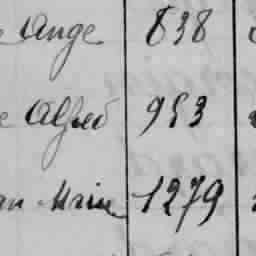 e Ange 838
e Alfred 953
an Marie 1279